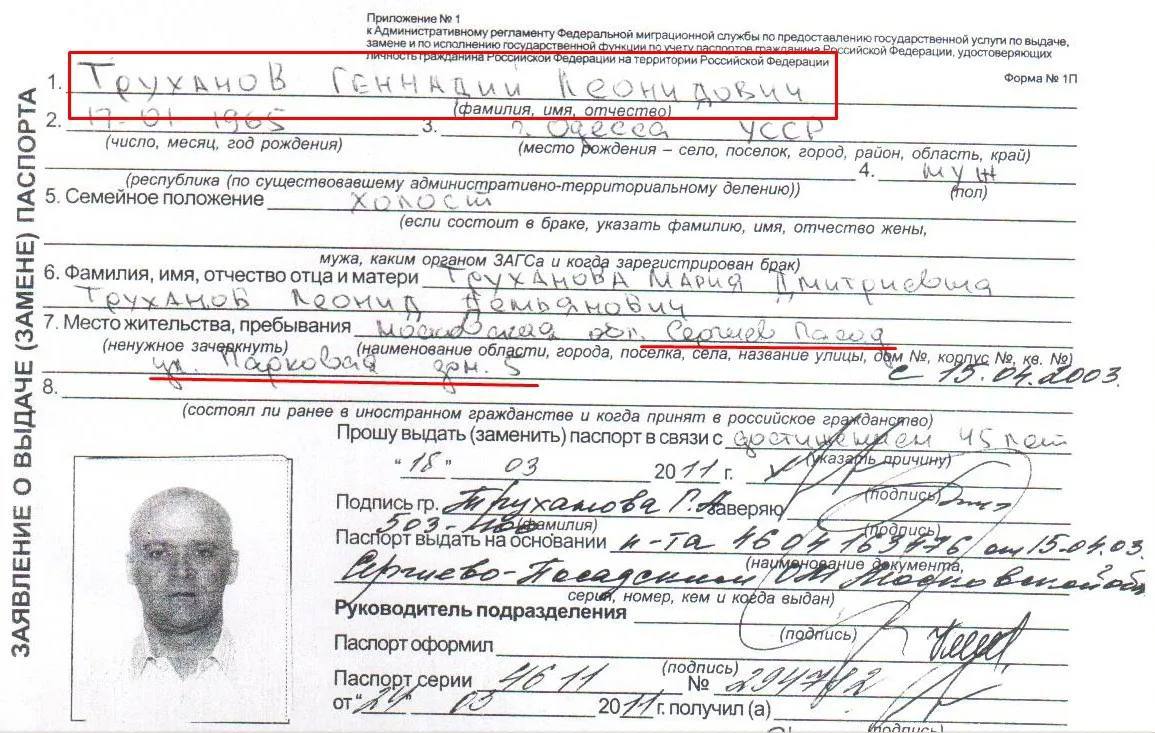 Приложение № 1
к Административному регламенту Федеральной миграционной службы по предоставлению государственной услуги по выдаче,
замене и по исполнению государственной функции по учету паспортов гражданина Российской Федерации, удостоверяющих
личность гражданина Российской Федерации на территории Российской Федерации
Форма № 1П
ЗАЯВЛЕНИЕ О ВЫДАЧЕ (ЗАМЕНЕ) ПАСПОРТА
1. Труханов Геннадий Леонидович
(фамилия, имя, отчество)
2. 17-01 1965 3. г. Одесса УССР
(число, месяц, год рождения) (место рождения – село, поселок, город, район, область, край)
4. муж
(республика (по существовавшему административно-территориальному делению)) (пол)
5. Семейное положение холост
(если состоит в браке, указать фамилию, имя, отчество жены,
мужа, каким органом ЗАГСа и когда зарегистрирован брак)
6. Фамилия, имя, отчество отца и матери Труханова Мария Дмитриевна
Труханов Леонид Демьянович
7. Место жительства, пребывания Московская обл. Сергиев Посад
(ненужное зачеркнуть) (наименование области, города, поселка, села, название улицы, дом №, корпус №, кв. №)
ул. Парковая дом. 5 с 15.04.2003.
8.
(состоял ли ранее в иностранном гражданстве и когда принят в российское гражданство)
Прошу выдать (заменить) паспорт в связи с достижением 45 лет
(указать причину)
"18" 03 2011 г.
(подпись)
Подпись гр. Труханова Г.Л. заверяю
(фамилия) (подпись)
503-
Паспорт выдать на основании п-та 46 04 163476 от 15.04.03.
(наименование документа,
Сергиево-Посадским ОМ Московской обл
серия, номер, кем и когда выдан)
Руководитель подразделения
(подпись)
Паспорт оформил
(подпись)
Паспорт серии 46 11 № 294782
от "24" 03 2011 г. получил (а)
(подпись)